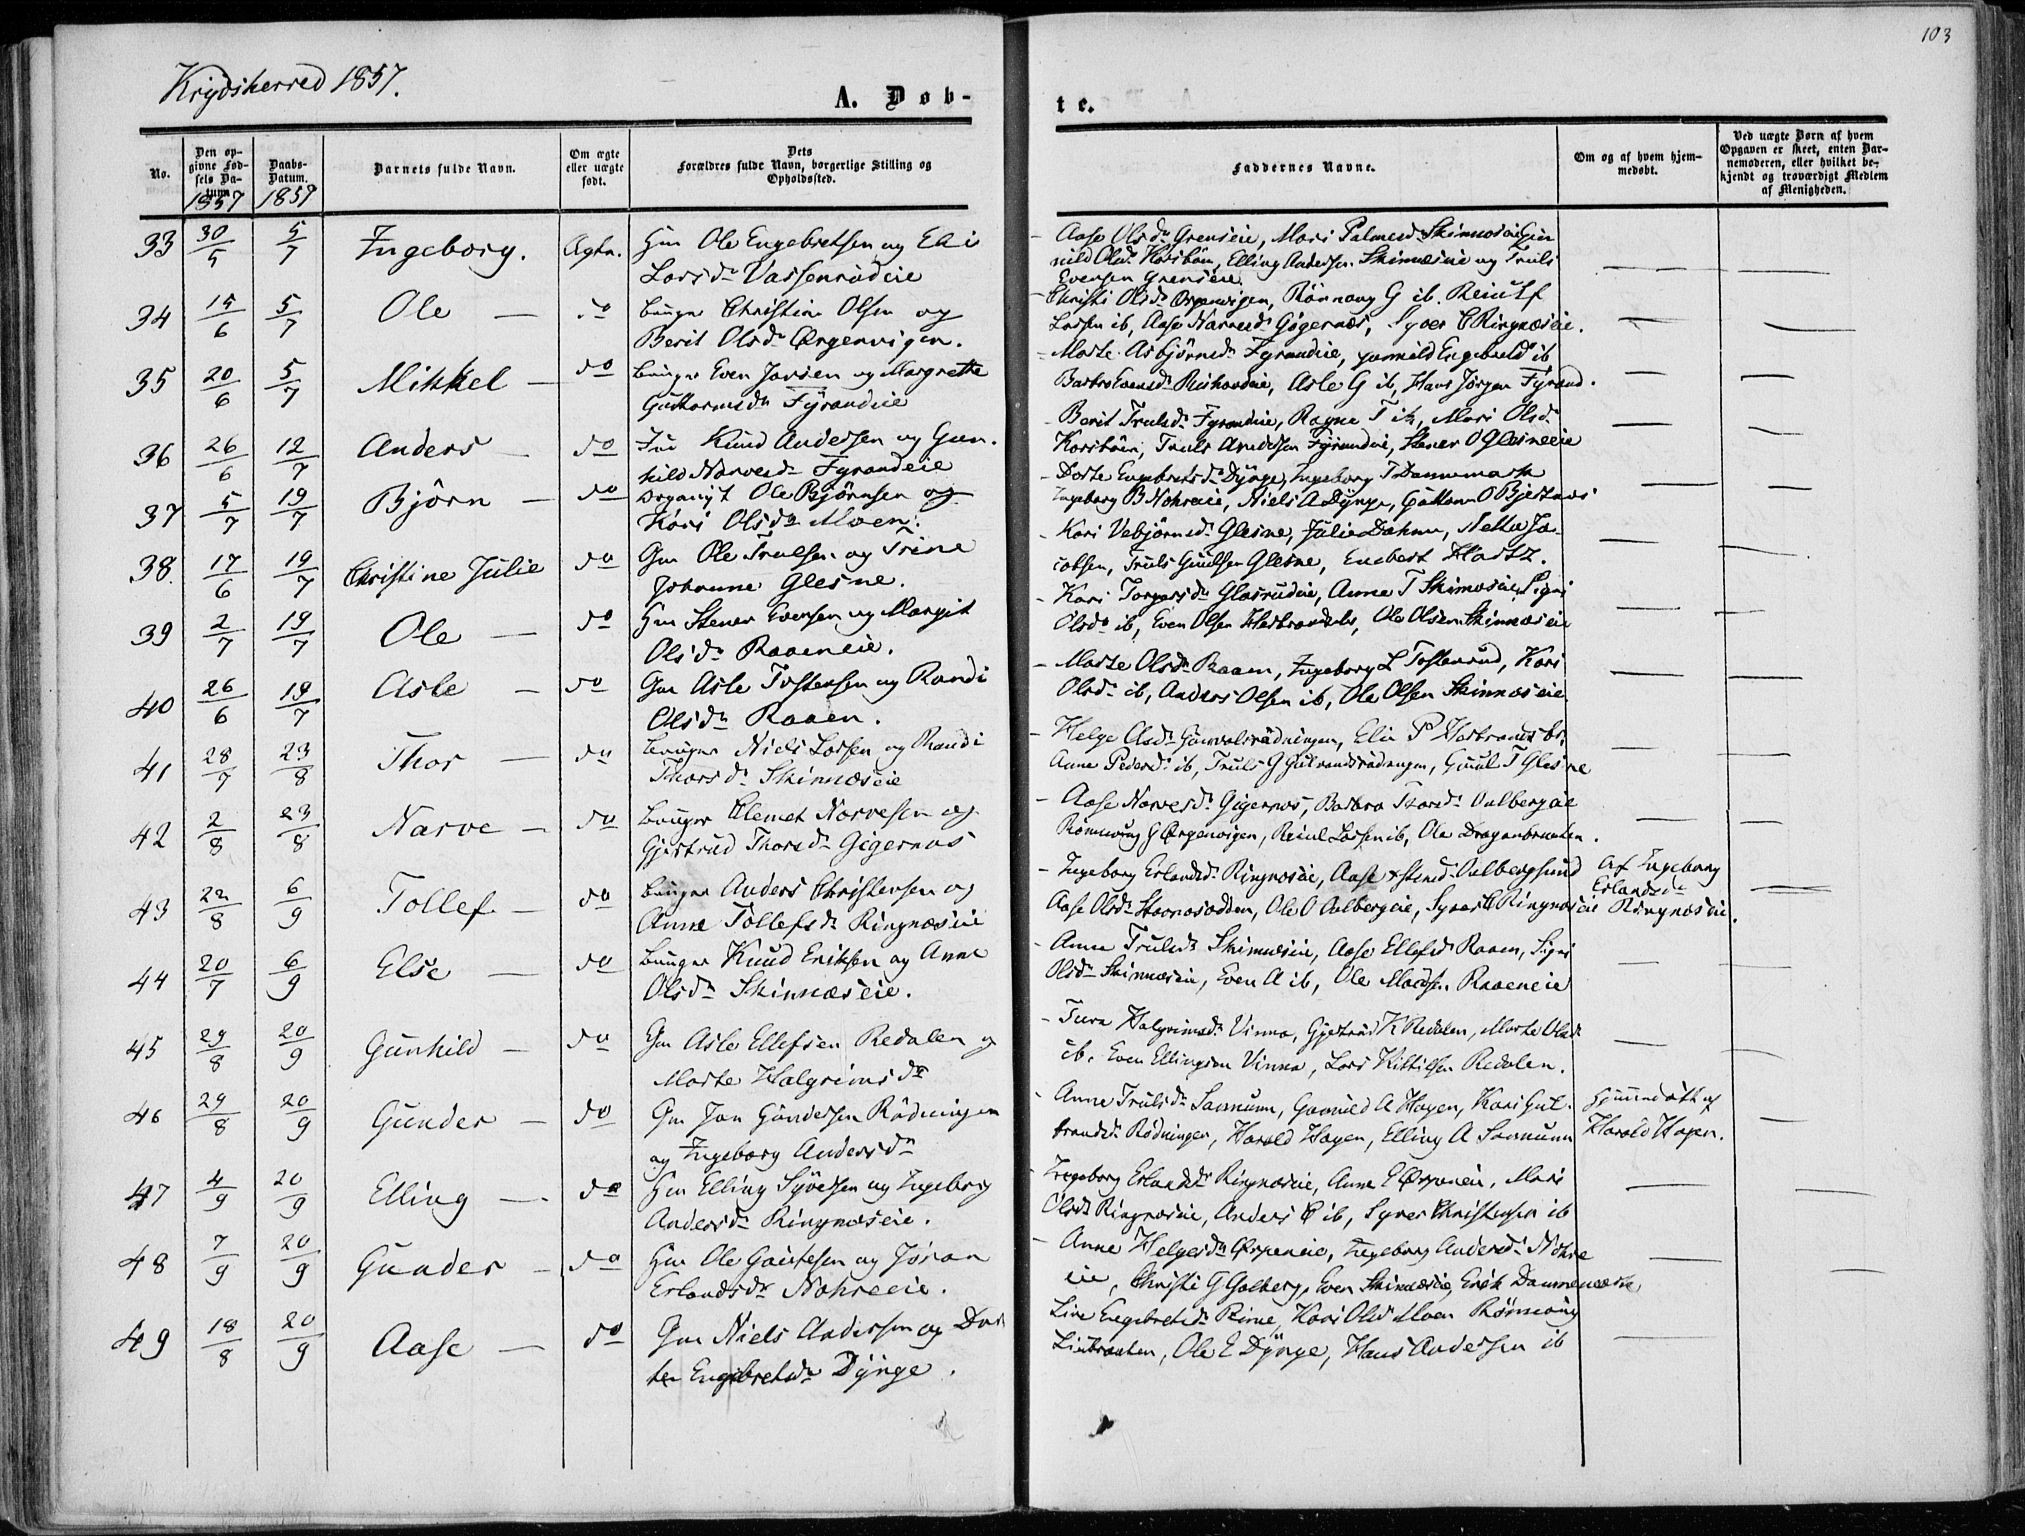 103
Krydsherred 1857.
A. Døb-
te.
No.
Den op-
givne Fød-
sels Da-
tum
1857
Daabs-
Datum.
1857
Barnets fulde Navn.
Om ægte
eller uægte
født.
Dets
Forældres fulde Navn, borgerlige Stilling og
Opholdssted.
Faddernes Navne.
Om og af hvem hjem-
medøbt.
Ved uægte Børn af hvem
Opgaven er skeet, enten Bar-
nemoderen, eller hvilket be-
kjendt og troværdigt Medlem
af Menigheden.
33 30/5 5/7 Ingeborg. Ægte. Ole Engebretsen og Eli
Larsdr Vassenrudeie
Aase Olsdr Grenseie, Mari Palmesd Skinnæseie
Olsdr Korsbøen, Elling Andersen Skinnæseie og Truls
Evensen Grenseie
34 15/6 5/7 Ole — do Christian Olsen og
Berit Olsdr Ørgenvigen.
Christi Olsdr Ørgenvigen, Rønnaug G ib. Reiulf
Larsen ib, Aase Narvesdr Gigernæs, Syver C Ringnæseie.
35 20/6 5/7 Mikkel — do Even Jansen og Margrethe
Guttormsdr Fyrandeie
Marte Asbjørnsdr Fyrandeie, Engebretsd ib
Barbro Evensdr, Asle G ib, Hans Jørgen Fyrand.
36 26/6 12/7 Anders — do Knud Andersen og Gun-
hild Narvesdr Fyrandeie
Berit Trulsdr Fyrandeie, Ragne T ib, Mari Olsdr
Korsbøen, Truls Andersen Fyrandeie, Stener O Glesneeie
37 5/7 19/7 Bjørn — do Ole Bjørnsen og
Kari Olsdr Moen.
Dorte Engebretsdr Dynge, Ingeborg T Dannemark
Ingeborg B Nohreeie, Niels A Dynge, Guttorm O Bjertnæs
38. 17/6 19/7 Christine Julie do Gm Ole Trulsen og Trine
Johanne Glesne.
Kari Vebjørnsdr Glesne, Julie Dahm, Ja-
cobsen, Truls Gulsen Glesne, Engebert Hartz.
39 2/7 19/7 Ole — do Stener Evensen og Margit
Olsdr Raaeneie.
Kari Torgersdr Glasrudeie, Anne T Skinnæseie, Sigri
Olsdr ib, Even Olsen, Ole Olsen Skinnæseie
40 26/6 19/7 Asle — do Gm Asle Tostensen og Randi
Olsdr Raaen.
Marte Olsdr Raaen, Ingeborg L Tostenrud, Kari
Olsdr ib, Anders Olsen ib, Ole Olsen Skinnæseie
41 28/7 23/8 Thor — do Niels Larsen og Randi
Thorsdr Skinnæseie
Helge Asdr, Elie P
Anne Pedersdr ib, Truls G, Guul T Glesne
42 2/8 23/8 Narve — do Clemet Narvesen og
Gjertrud Thorsdr Gigernæs
Aase Narvesdr Gigernæs, Barbra Thorsdr Aalbergeie
Rønnaug G Ørgenvigen, Reiul Larsen ib, Ole Dragenbraaten.
43 22/8 6/9 Tollef — do Anders Christensen og
Anne Tollefsdr Ringnæseie
Ingeborg Erlandsdr Ringnæseie, Aase Aalbergsund
Aase Olsdr, Ole O Aalbergeie, Syver C Ringnæseie
Af Ingeborg
Erlandsdr
Ringnæseie.
44 20/7 6/9 Else — do Knud Eriksen og Anne
Olsdr Skinnæseie.
Anne Trulsdr Skinnæseie, Aase Ellefsd Raaen, Sigri
Olsdr Skinnæseie, Even A ib, Ole Madsen Raaeneie
45 29/8 20/9 Gunhild — do Gm Asle Ellefsen Redalen og
Marte Halgrimsdr
Ture Halgrimsdr Vinna, Gjertrud K Redalen, Marte Olsdr
ib. Even Ellingsen Vinna, Lars Kittilsen Redalen.
46 29/8 20/9 Gunder — do Gm Jon Gundersen Rødningen
og Ingeborg Andersdr
Anne Trulsdr, A Hagen, Kari Gul-
brandsdr Rødningen, Harald Hagen, Elling A
Hjemmedøbt af
Harald Hagen.
47 4/9 20/9 Elling — do Elling Syversen og Ingeborg
Andersdr Ringnæseie.
Ingeborg Erlandsdr Ringnæseie, Anne E, Mari
Olsdr Ringnæseie, Anders C ib, Syver Christensen ib
48 7/9 20/9 Gunder — do Ole Gautesen og Jøran
Erlandsdr Nohreeie.
Anne Helgesdr, Ingeborg Andersdr Nohre
eie, Christi G Golberg, Even Skinnæseie, Erik Dannemark
49 18/8 20/9 Aase — do Gm Niels Andersen og Dor-
the Engebretsdr Dynge.
Live Engebretsdr Rime, Kari Olsdr Moen Rønnaug
Liebraaten, Ole E Dynge, Hans Andersen ib